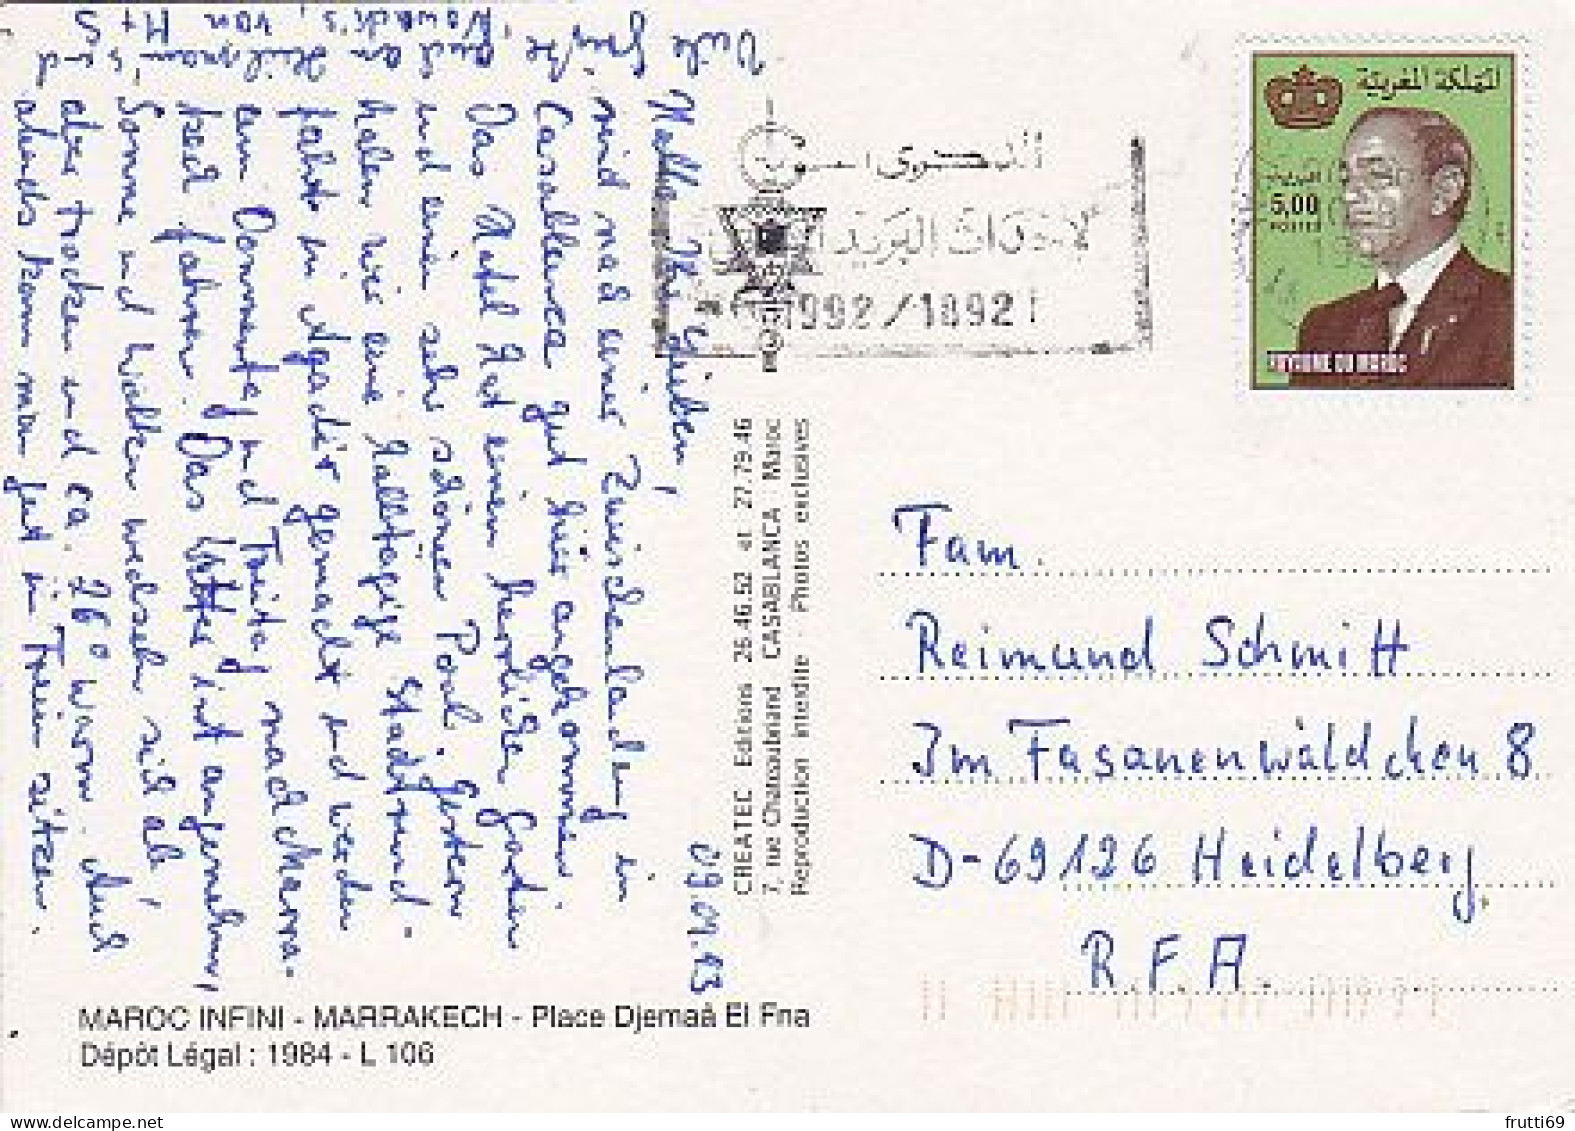 09.01.93
Hallo Ihr Lieben,
sind nach einer Zwischenlandung in
Casablanca gut hier angekommen.
Das Hotel hat einen herrlichen Garten
und einen sehr schönen Pool. Gestern
haben wir eine halbtägige Stadtrund-
fahrt in Agadir gemacht und werden
am Donnerstag und Freitag nach Marra-
kech fahren. Das Wetter ist angenehm,
Sonne und Wolken wechseln sich ab,
aber trocken und ca. 26° warm. Auch
abends kann man gut im Freien sitzen.
Viele Grüße
auch an
Nowack's, von
H + S
المملكة المغربية
5,00
POSTES
ROYAUME DU MAROC
الذكرى
لإندفاعات البريد
1992/1892
CREATEC Editions 26.46.52 et 27.79.46
7, rue Chateaubriand CASABLANCA - Maroc
Reproduction interdite - Photos exclusives
Fam.
Reimund Schmitt
Im Fasanenwäldchen 8
D-69126 Heidelberg
R.F.A.
MAROC INFINI - MARRAKECH - Place Djemaâ El Fna
Dépôt Légal : 1984 - L 106
frutti69